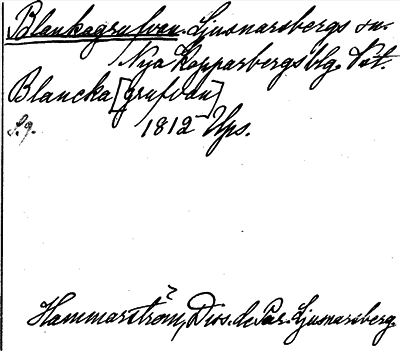 Blankagrufvan. Ljusnarsbergs sn.
Nya Kopparbergs blg. Vstl.
Blancka [grufvan]
S. 9. 1812 Ups.
Hammarström, Diss. de Par. Ljusnarsberg.